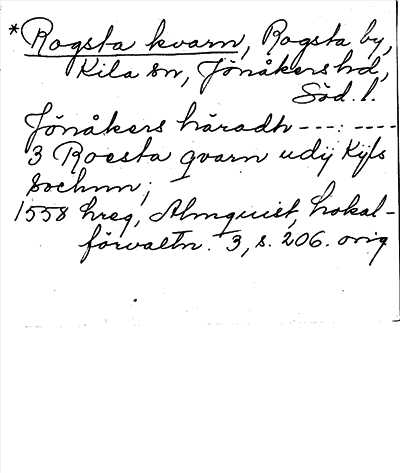 *Rogsta kvarn, Rogsta by,
Kila sn, Jönåkers hd,
Söd. l.
Jönåkers häradh ---: ----
3 Roesta qvarn udij Kijls
sochnn;
1558 hreg, Almquist, Lokal-
förvaltn. 3, s. 206. orig